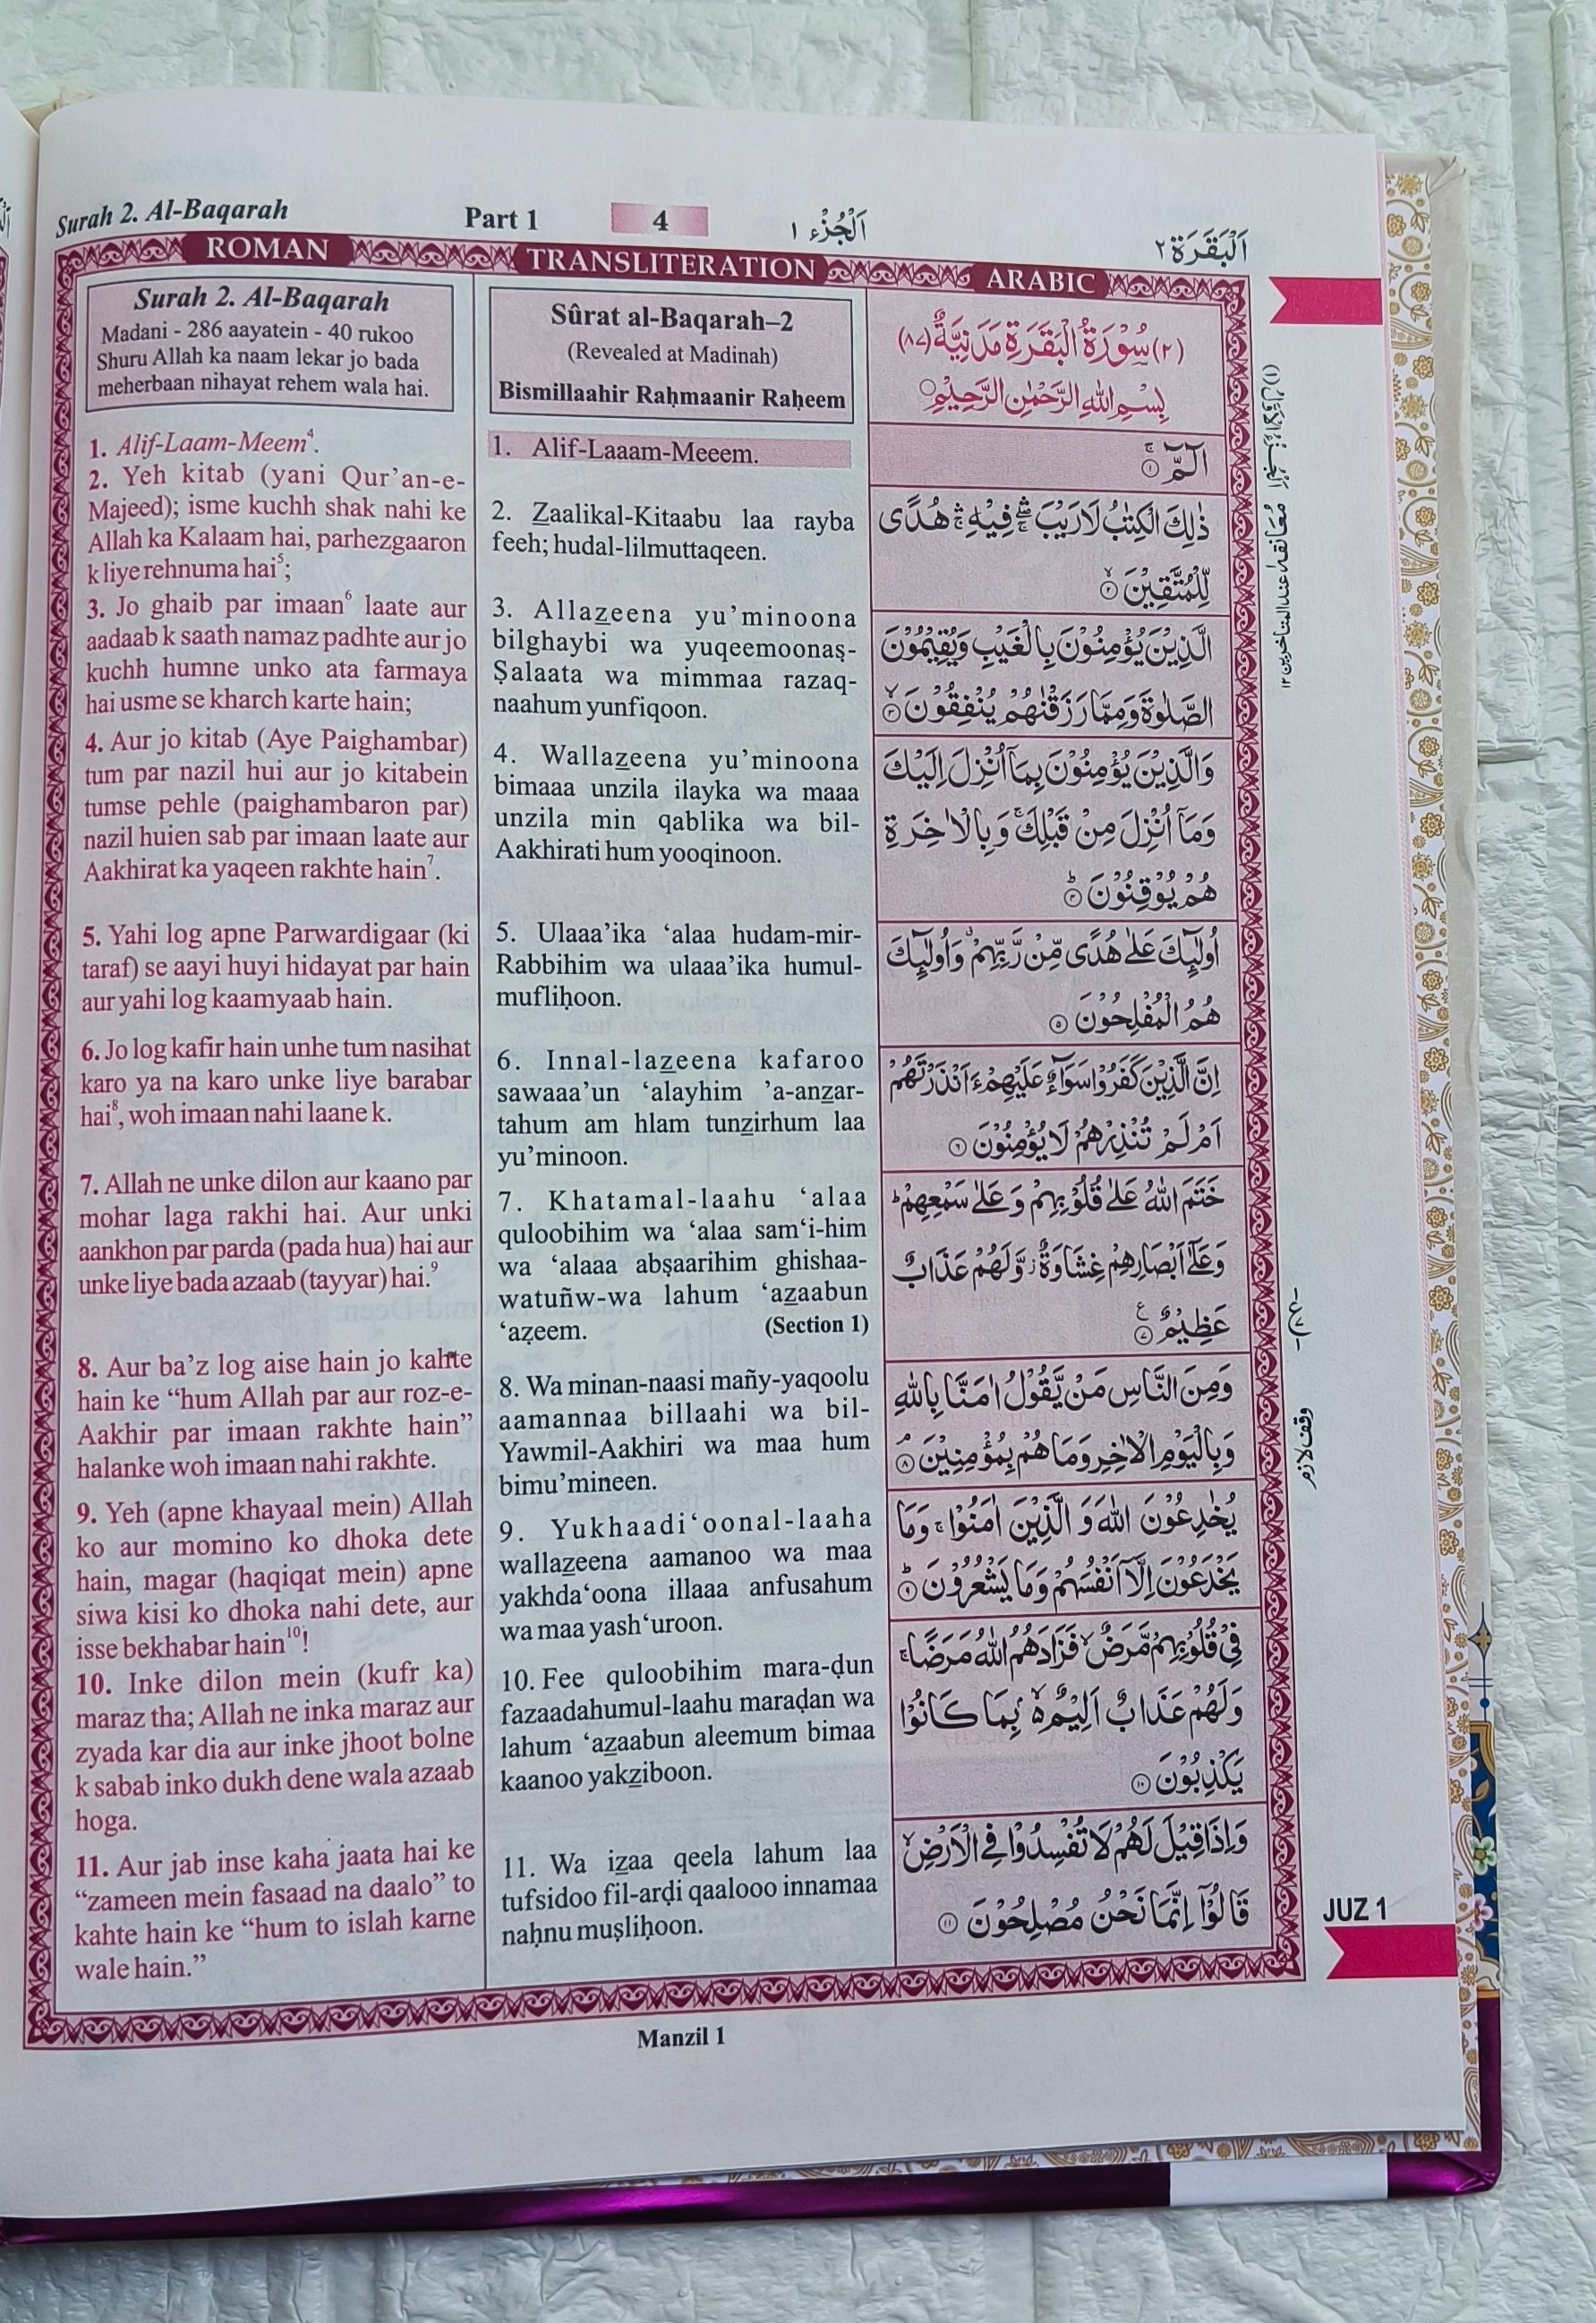 Surah 2. Al-Baqarah
Part 1
4
اَلْجُزْء ١
اَلْبَقَرَة ٢
ROMAN
TRANSLITERATION
ARABIC
Surah 2. Al-Baqarah
Madani - 286 aayatein - 40 rukoo
Shuru Allah ka naam lekar jo bada
meherbaan nihayat rehem wala hai.
1. Alif-Laam-Meem⁴.
2. Yeh kitab (yani Qur’an-e-
Majeed); isme kuchh shak nahi ke
Allah ka Kalaam hai, parhezgaaron
k liye rehnuma hai⁵;
3. Jo ghaib par imaan⁶ laate aur
aadaab k saath namaz padhte aur jo
kuchh humne unko ata farmaya
hai usme se kharch karte hain;
4. Aur jo kitab (Aye Paighambar)
tum par nazil hui aur jo kitabein
tumse pehle (paighambaron par)
nazil huien sab par imaan laate aur
Aakhirat ka yaqeen rakhte hain⁷.
5. Yahi log apne Parwardigaar (ki
taraf) se aayi huyi hidayat par hain
aur yahi log kaamyaab hain.
6. Jo log kafir hain unhe tum nasihat
karo ya na karo unke liye barabar
hai⁸, woh imaan nahi laane k.
7. Allah ne unke dilon aur kaano par
mohar laga rakhi hai. Aur unki
aankhon par parda (pada hua) hai aur
unke liye bada azaab (tayyar) hai.⁹
8. Aur ba’z log aise hain jo kahte
hain ke “hum Allah par aur roz-e-
Aakhir par imaan rakhte hain”
halanke woh imaan nahi rakhte.
9. Yeh (apne khayaal mein) Allah
ko aur momino ko dhoka dete
hain, magar (haqiqat mein) apne
siwa kisi ko dhoka nahi dete, aur
isse bekhabar hain¹⁰!
10. Inke dilon mein (kufr ka)
maraz tha; Allah ne inka maraz aur
zyada kar dia aur inke jhoot bolne
k sabab inko dukh dene wala azaab
hoga.
11. Aur jab inse kaha jaata hai ke
“zameen mein fasaad na daalo” to
kahte hain ke “hum to islah karne
wale hain.”
Sûrat al-Baqarah–2
(Revealed at Madinah)
Bismillaahir Raḥmaanir Raḥeem
1. Alif-Laaam-Meeem.
2. Z̲aalikal-Kitaabu laa rayba
feeh; hudal-lilmuttaqeen.
3. Allaz̲eena yu’minoona
bilghaybi wa yuqeemoonaṣ-
Ṣalaata wa mimmaa razaq-
naahum yunfiqoon.
4. Wallaz̲eena yu’minoona
bimaaa unzila ilayka wa maaa
unzila min qablika wa bil-
Aakhirati hum yooqinoon.
5. Ulaaa’ika ‘alaa hudam-mir-
Rabbihim wa ulaaa’ika humul-
mufliḥoon.
6. Innal-laz̲eena kafaroo
sawaaa’un ‘alayhim ’a-anz̲ar-
tahum am hlam tunz̲irhum laa
yu’minoon.
7. Khatamal-laahu ‘alaa
quloobihim wa ‘alaa sam‘i-him
wa ‘alaaa abṣaarihim ghishaa-
watuñw-wa lahum ‘az̲aabun
‘aẓeem. (Section 1)
8. Wa minan-naasi mañy-yaqoolu
aamannaa billaahi wa bil-
Yawmil-Aakhiri wa maa hum
bimu’mineen.
9. Yukhaadi‘oonal-laaha
wallaz̲eena aamanoo wa maa
yakhda‘oona illaaa anfusahum
wa maa yash‘uroon.
10. Fee quloobihim mara-ḍun
fazaadahumul-laahu maraḍan wa
lahum ‘az̲aabun aleemum bimaa
kaanoo yakz̲iboon.
11. Wa iz̲aa qeela lahum laa
tufsidoo fil-arḍi qaalooo innamaa
naḥnu muṣliḥoon.
(٢) سُوْرَةُ الْبَقَرَةِ مَدَنِيَّةٌ (٨٧)
بِسْمِ اللهِ الرَّحْمٰنِ الرَّحِيْمِ
الٓمّٓ ۚ ١
ذٰلِكَ الْكِتٰبُ لَا رَيْبَ ۛ فِيْهِ ۛ هُدًى
لِّلْمُتَّقِيْنَ ۙ ٢
الَّذِيْنَ يُؤْمِنُوْنَ بِالْغَيْبِ وَيُقِيْمُوْنَ
الصَّلٰوةَ وَمِمَّا رَزَقْنٰهُمْ يُنْفِقُوْنَ ۙ ٣
وَالَّذِيْنَ يُؤْمِنُوْنَ بِمَآ اُنْزِلَ اِلَيْكَ
وَمَآ اُنْزِلَ مِنْ قَبْلِكَ ۚ وَبِالْاٰخِرَةِ
هُمْ يُوْقِنُوْنَ ؕ ٤
اُولٰٓئِكَ عَلٰى هُدًى مِّنْ رَّبِّهِمْ ۗ وَاُولٰٓئِكَ
هُمُ الْمُفْلِحُوْنَ ٥
اِنَّ الَّذِيْنَ كَفَرُوْا سَوَآءٌ عَلَيْهِمْ ءَاَنْذَرْتَهُمْ
اَمْ لَمْ تُنْذِرْهُمْ لَا يُؤْمِنُوْنَ ٦
خَتَمَ اللهُ عَلٰى قُلُوْبِهِمْ وَعَلٰى سَمْعِهِمْ ؕ
وَعَلٰٓى اَبْصَارِهِمْ غِشَاوَةٌ ز وَّلَهُمْ عَذَابٌ
عَظِيْمٌ ع ٧
وَمِنَ النَّاسِ مَنْ يَّقُوْلُ اٰمَنَّا بِاللهِ
وَبِالْيَوْمِ الْاٰخِرِ وَمَا هُمْ بِمُؤْمِنِيْنَ ۘ ٨
يُخٰدِعُوْنَ اللهَ وَالَّذِيْنَ اٰمَنُوْا ۚ وَمَا
يَخْدَعُوْنَ اِلَّآ اَنْفُسَهُمْ وَمَا يَشْعُرُوْنَ ؕ ٩
فِيْ قُلُوْبِهِمْ مَّرَضٌ ۙ فَزَادَهُمُ اللهُ مَرَضًا ۚ
وَلَهُمْ عَذَابٌ اَلِيْمٌ ۢ ۙ بِمَا كَانُوْا
يَكْذِبُوْنَ ١٠
وَاِذَا قِيْلَ لَهُمْ لَا تُفْسِدُوْا فِي الْاَرْضِ ۙ
قَالُوْٓا اِنَّمَا نَحْنُ مُصْلِحُوْنَ ١١
معانقه عند المتاخرين ١٢
وقف لازم
JUZ 1
Manzil 1